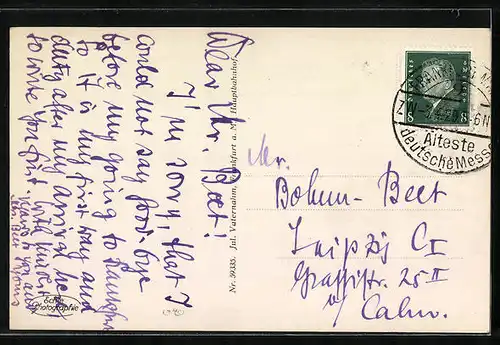 Dear Mr. Beet!
I'm sorry, that I
could not say good-bye
before my going to Frankfurt
so it is my first way and
duty after my arrival here
to write you first with kindest
Echte
Photographie
Nr. 59335. Jul. Vaternahm, Frankfurt a. M., Hauptbahnhof
Mr.
Bohun - Beet
Leipzig C1
Grassistr. 25 II
b/ Calm.
8 8
Älteste
deutsche Messe